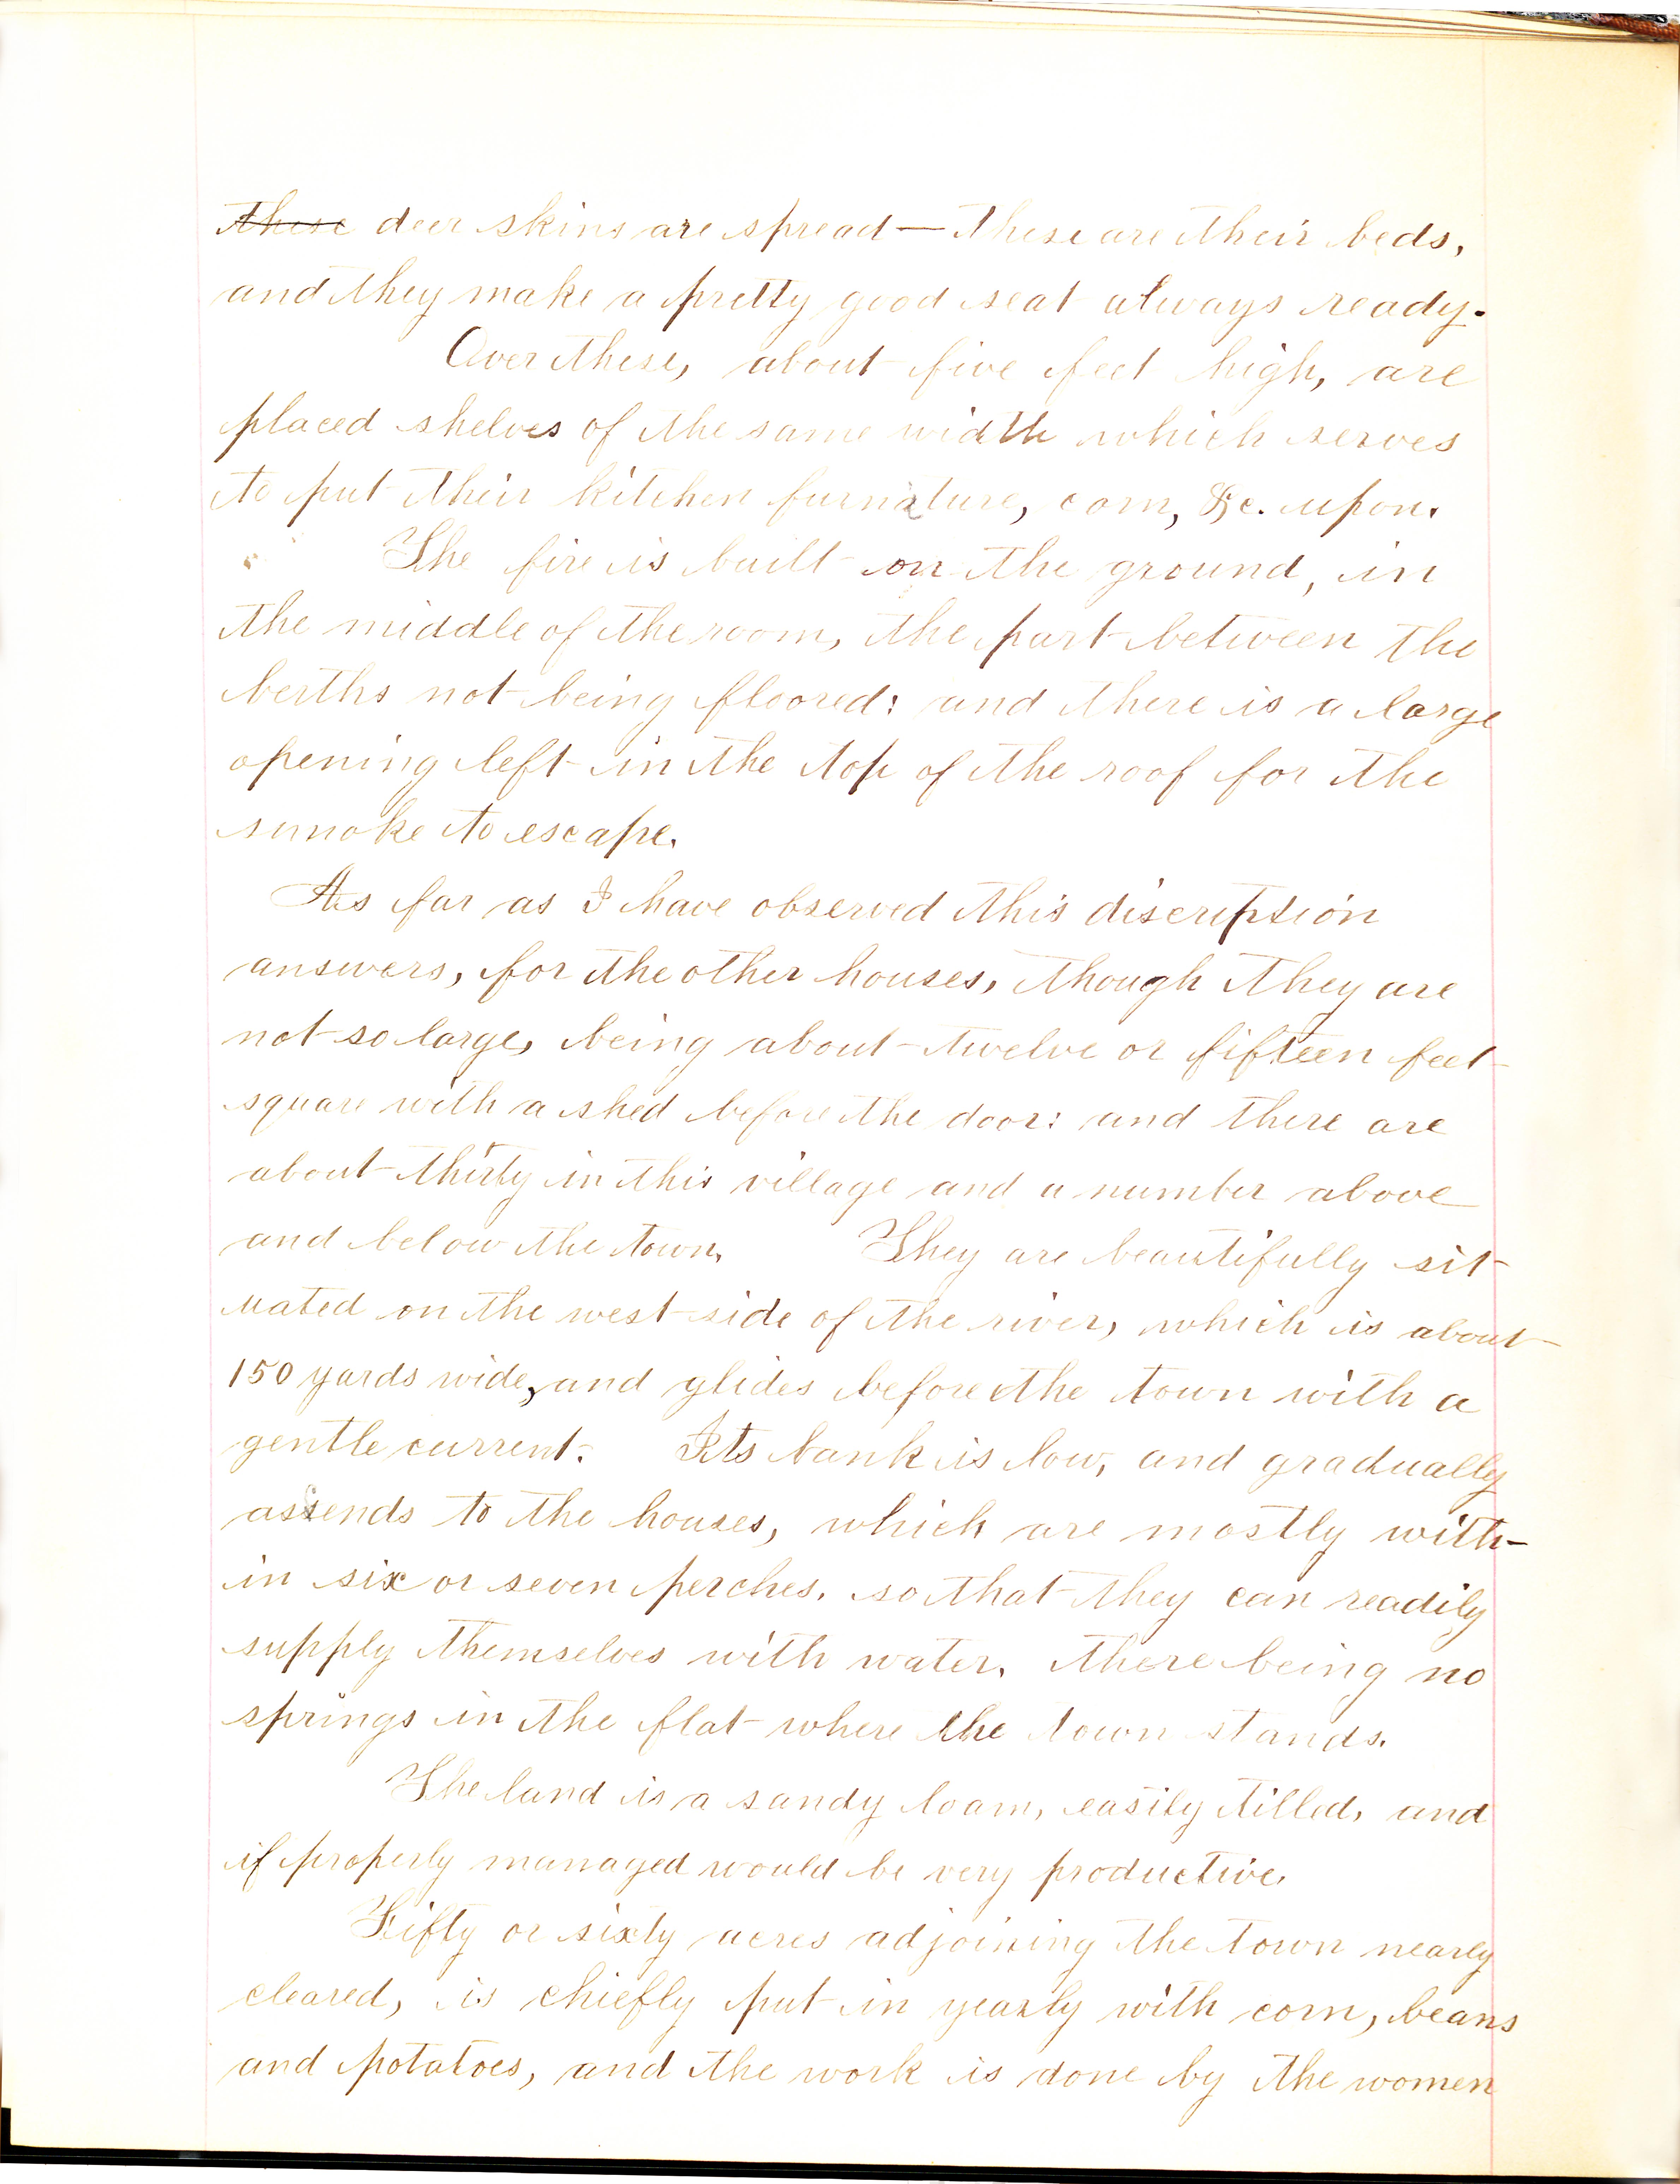 these deer skins are spread — these are their beds,
and they make a pretty good seat always ready.
Over these, about five feet high, are
placed shelves of the same width which serves
to put their kitchen furniture, corn, &c. upon.
The fire is built on the ground, in
the middle of the room, the part between the
berths not being floored: and there is a large
opening left in the top of the roof for the
smoke to escape.
As far as I have observed this discription
answers, for the other houses, though they are
not so large, being about twelve or fifteen feet
square with a shed before the door: and there are
about thirty in this village and a number above
and below the town. They are beautifully sit-
uated on the west side of the river, which is about
150 yards wide, and glides before the town with a
gentle current. Its bank is low, and gradually
assends to the houses, which are mostly with-
in six or seven perches, so that they can readily
supply themselves with water, there being no
springs in the flat where the town stands.
The land is a sandy loam, easily tilled, and
if properly managed would be very productive.
Fifty or sixty acres adjoining the town nearly
cleared, is chiefly put in yearly with corn, beans
and potatoes, and the work is done by the women